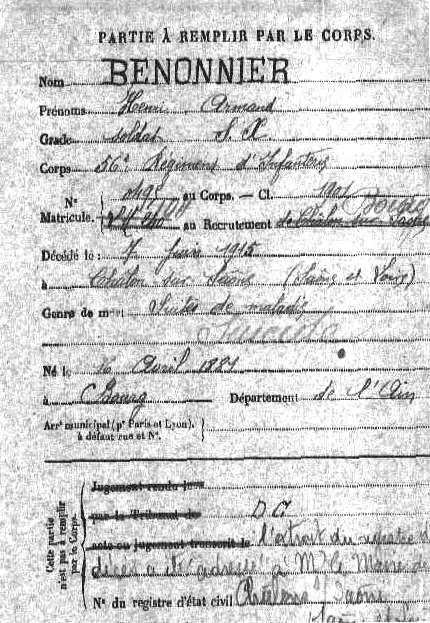 PARTIE À REMPLIR PAR LE CORPS.
Nom BENONNIER
Prénoms Henri Armand
Grade soldat
Corps 56e Régiment d'Infanterie
N° Matricule. au Corps. — Cl. 1901
au Recrutement de Chalon sur Saône
Décédé le : 7 Juin 1915
à Chalon sur Saône (Saône et Loire)
Genre de mort Suites de maladie
Né le Avril
à Bourg Département de l'Ain
Arrt municipal (pr Paris et Lyon), à défaut rue et N°.
Cette partie n'est pas à remplir par le Corps.
Jugement rendu le
par le Tribunal de D C
acte ou jugement transcrit le l'extrait du registre
décès a été adressé à Mr le Maire de
N° du registre d'état civil Chalons Saône